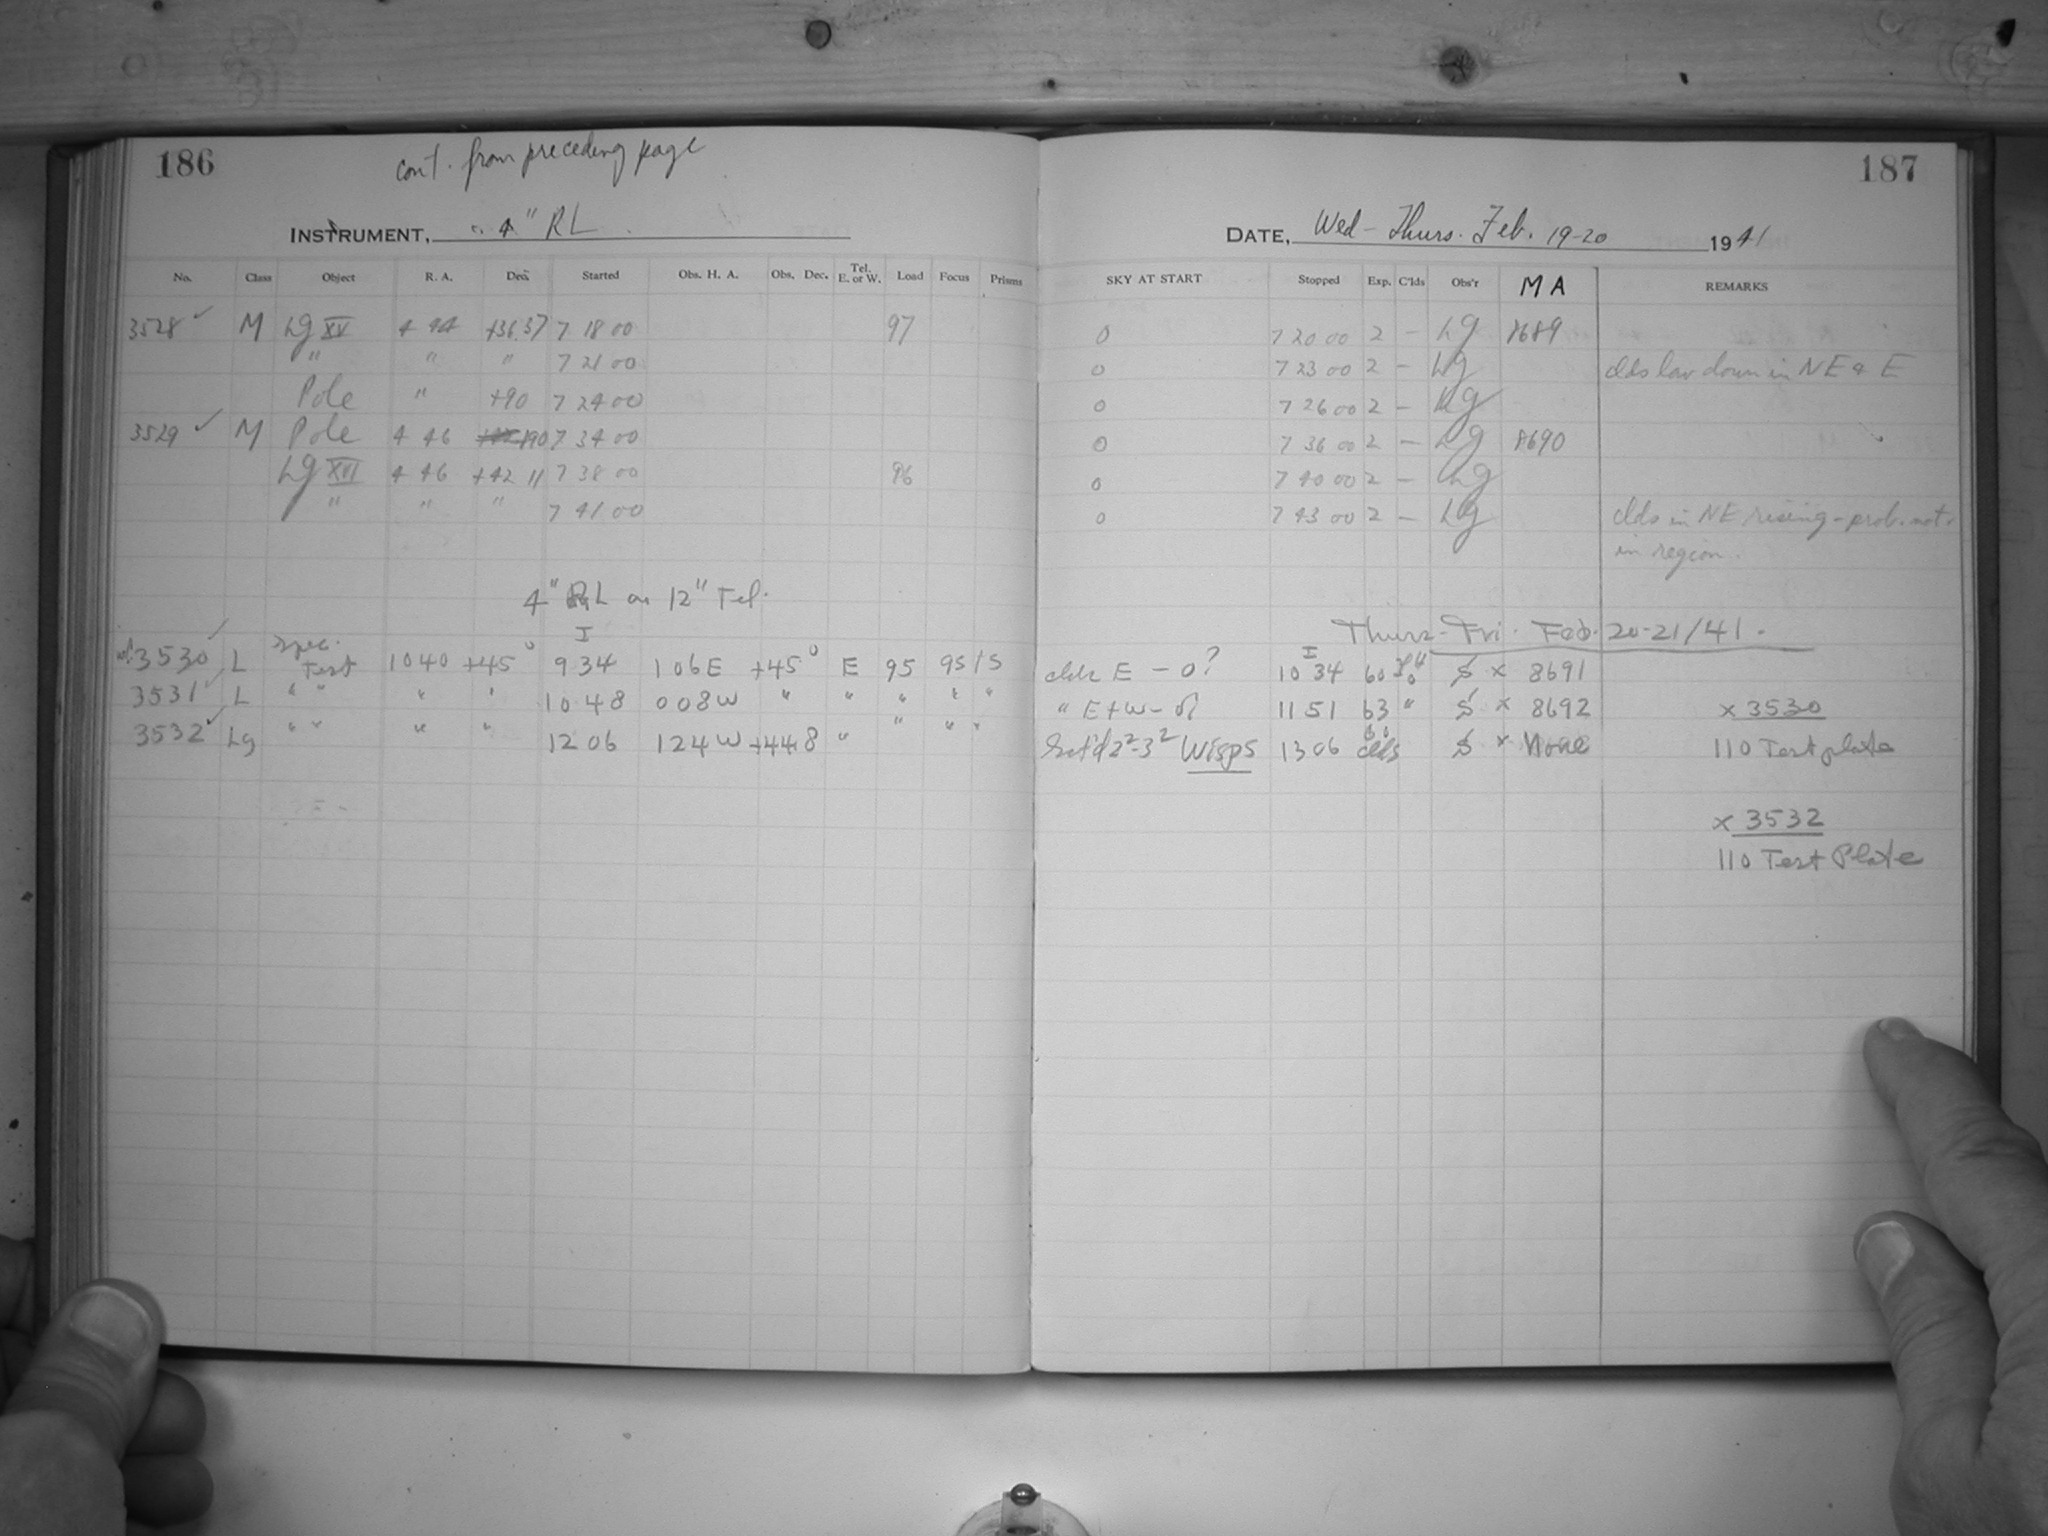 186
cont. from preceding page
INSTRUMENT, 4" RL
No. Class Object R. A. Dec. Started Obs. H. A. Obs. Dec. Tel. E. or W. Load Focus Prisms
3528 ✓ M Lg XV 4 44 +36.37 7 18 00 97
" " " 7 21 00
Pole " +90 7 24 00
3529 ✓ M Pole 4 46 +90 7 34 00
Lg XVI 4 46 +42 11 7 38 00 96
" " " 7 41 00
4" RL on 12" Tel.
I
3530 ✓ L Spec. Test 10 40 +45° 9 34 1 06 E +45° E 95 95 15
3531 ✓ L " " " " 10 48 0 08 W " " " " "
3532 ✓ Lg " " " " 12 06 1 24 W +44.8 " " " "
187
DATE, Wed - Thurs. Feb. 19-20 1941
SKY AT START Stopped Exp. C'lds Obs'r MA REMARKS
0 7 20 00 2 – Lg 8689
0 7 23 00 2 – Lg clds low down in NE & E
0 7 26 00 2 – Lg
0 7 36 00 2 – Lg 8690
0 7 40 00 2 – Lg
0 7 43 00 2 – Lg clds in NE rising - prob. not
in region.
Thurs - Fri. Feb. 20-21/41.
I
E – 0? 10 34 60 S × 8691
" E + W – 11 51 63 " S × 8692 × 3530
2²-3² Wisps 13 06 60 clds S × None 110 Test plate
× 3532
110 Test Plate